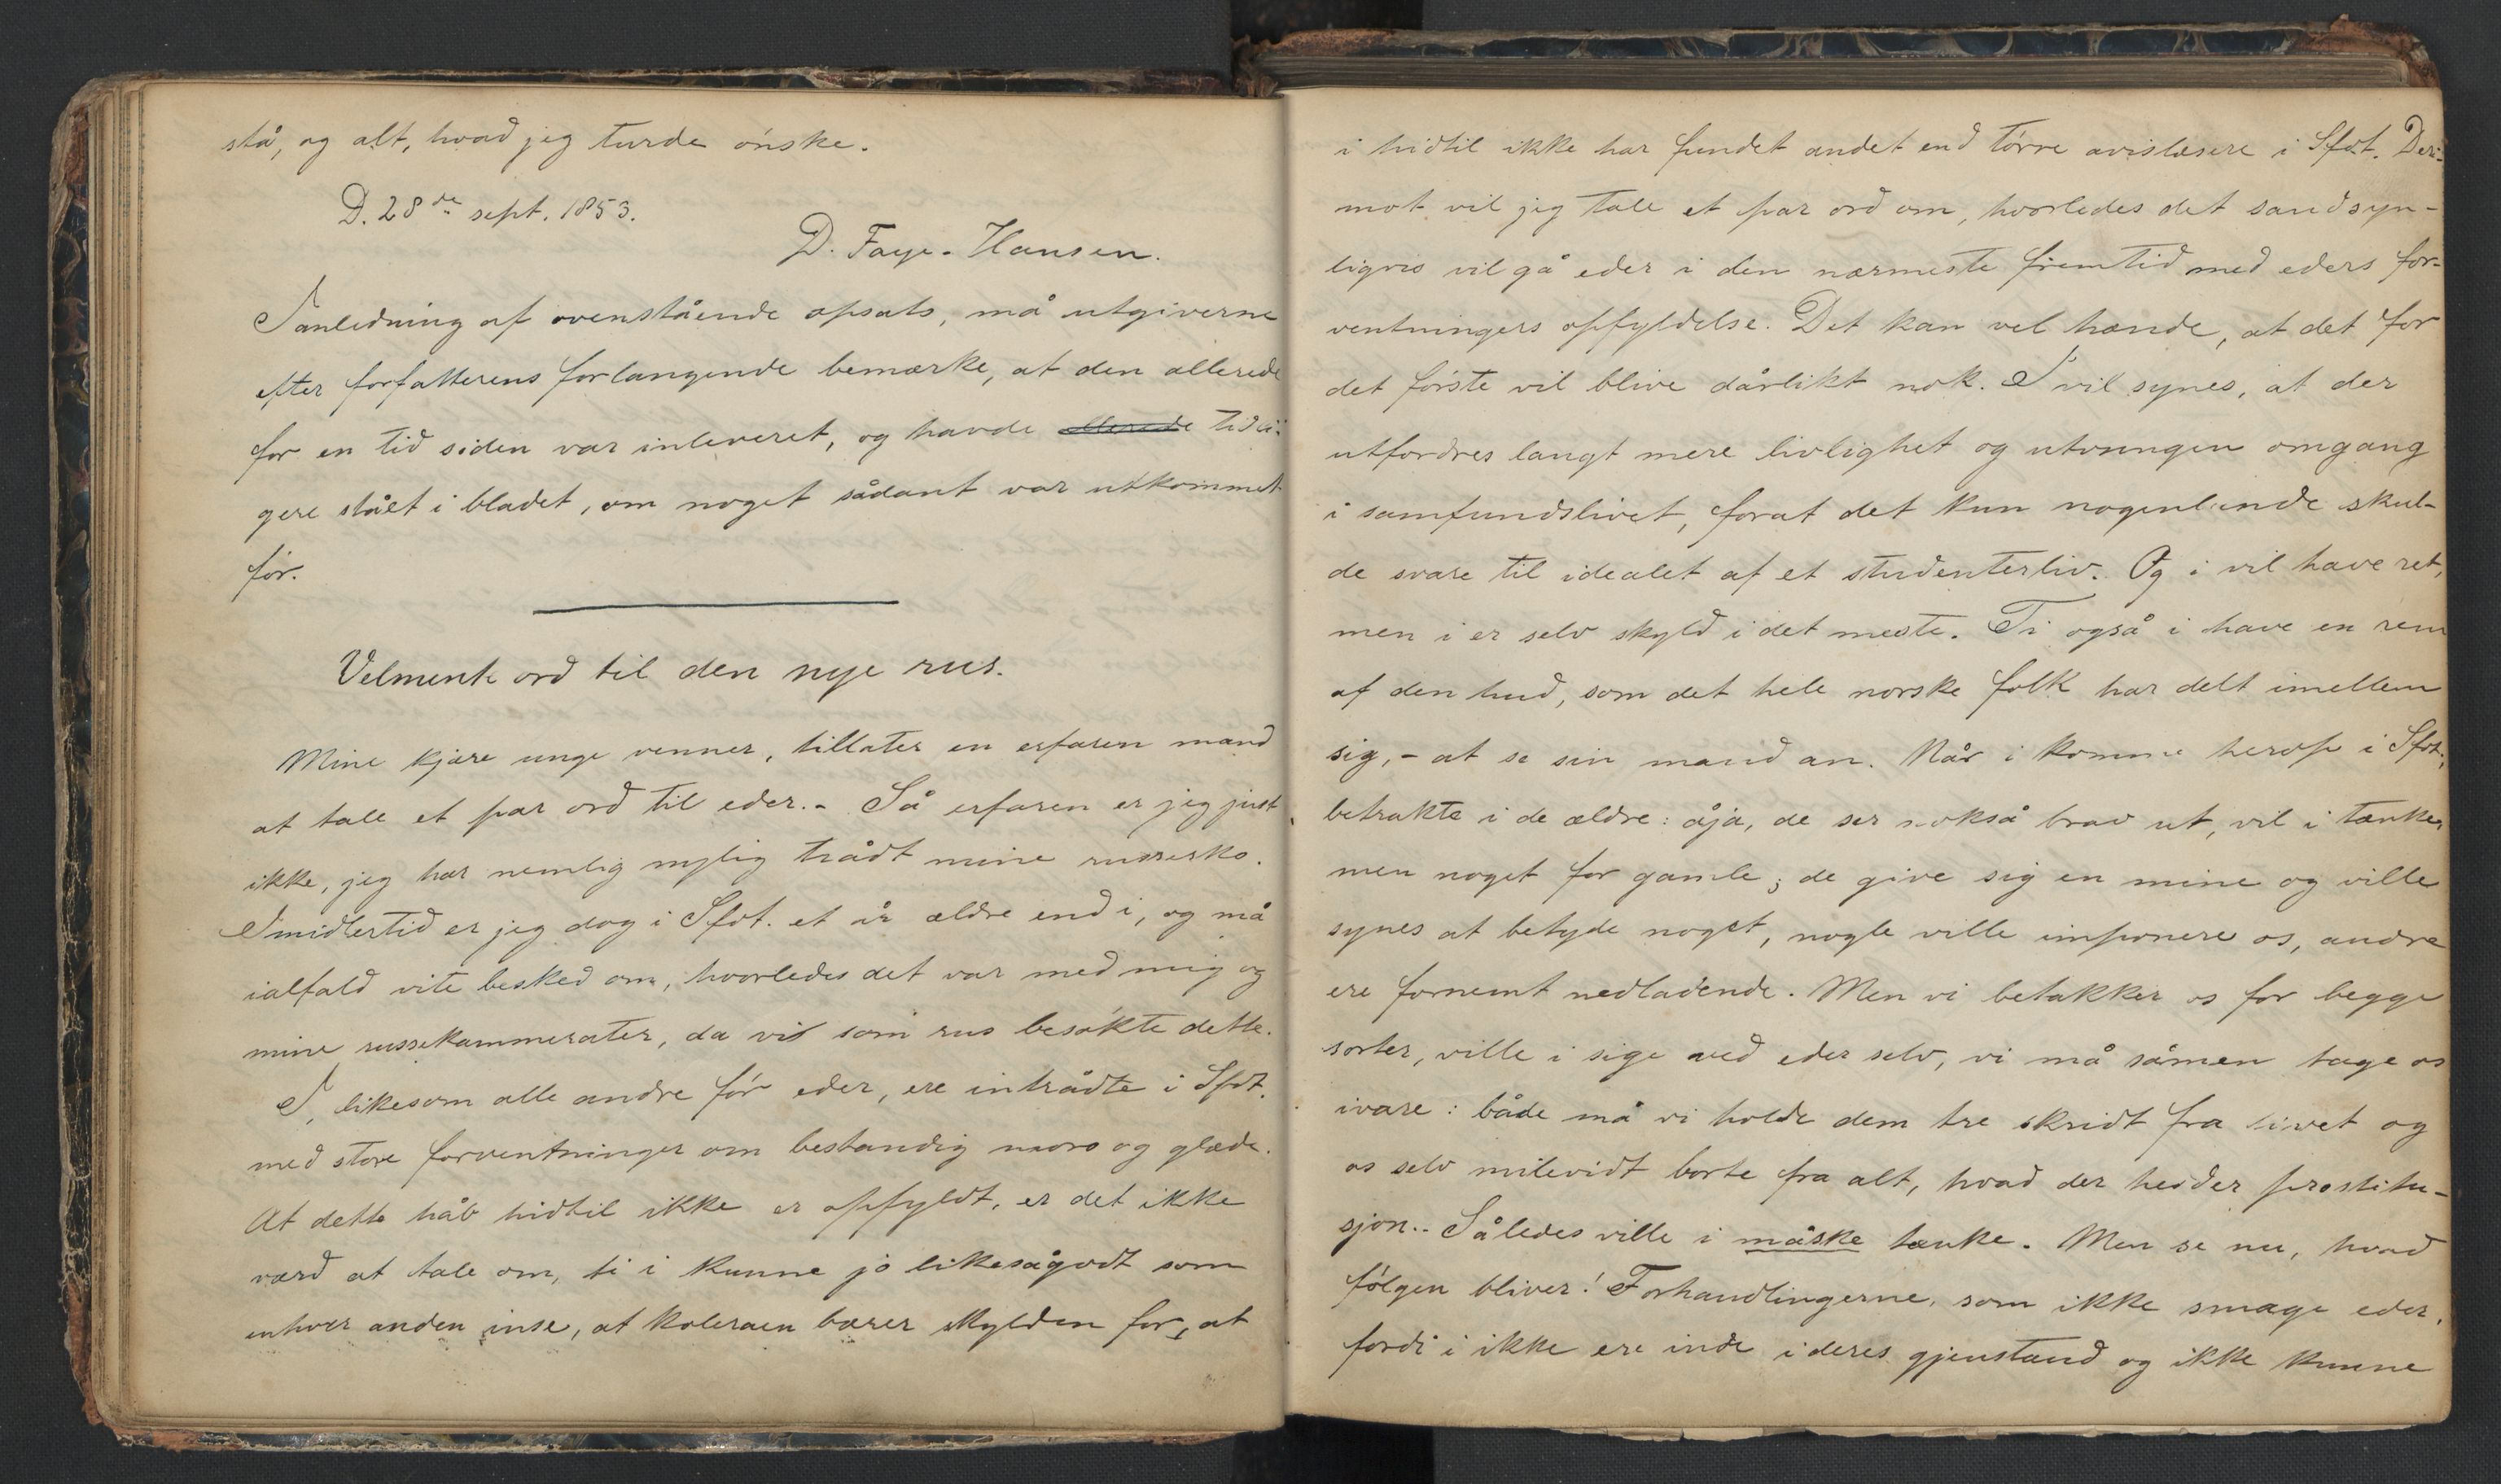 stå, og alt, hvad jeg turde ønske.
D. 28de sept. 1853.
D. Faye-Hansen.
I anledning af ovenstående opsats, må utgiverne
efter forfatterens forlangende bemærke, at den allerede
for en tid siden var inleveret, og havde allerede tidli-
gere stået i bladet, om noget sådant var utkommet
før.
Velment ord til den nye rus.
Mine kjære unge venner, tillater en erfaren mand
at tale et par ord til eder. - Så erfaren er jeg just
ikke, jeg har nemlig nylig trådt mine russesko.
Imidlertid er jeg dog i Sfdt. et år ældre end i, og må
ialfald vite besked om, hvorledes det var med mig og
mine russekammerater, da vi som rus besøkte dette.
I, likesom alle andre før eder, ere intrådte i Sfdt.
med store forventninger om bestandig moro og glæde.
At dette håb hidtil ikke er opfyldt, er det ikke
værd at tale om, ti i kunne jo likesågodt som
enhver anden inse, at koleraen bærer skylden for, at
i hidtil ikke har fundet andet end tørre avislæsere i Sfdt. Der-
mot vil jeg tale et par ord om, hvorledes det sandsyn-
ligvis vil gå eder i den nærmeste fremtid med eders for-
ventningers opfyldelse. Det kan vel hænde, at det for
det første vil blive dårlikt nok. I vil synes, at der
utfordres langt mere livlighet og utvungen omgang
i samfundslivet, forat det kun nogenlunde skul-
de svare til idealet af et studenterliv. Og i vil have ret,
men i er selv skyld i det meste. Ti også i have en rem
af den hud, som det hele norske folk har delt imellem
sig, - at se sin mand an. Når i komme herop i Sfdt.,
betrakte i de ældre: åja, de ser nokså brav ut, vil i tænke,
men noget for gamle; de give sig en mine og ville
synes at betyde noget, nogle ville imponere os, andre
ere fornemt nedladende. Men vi betakker os for begge
sorter, ville i sige ved eder selv, vi må såmen tage os
ivare: både må vi holde dem tre skridt fra livet og
os selv milevidt borte fra alt, hvad der hedder prostitu-
sjon.. Således ville i måske tænke. Men se nu, hvad
følgen bliver! Forhandlingerne, som ikke smage eder,
fordi i ikke ere inde i deres gjenstand og ikke kunne